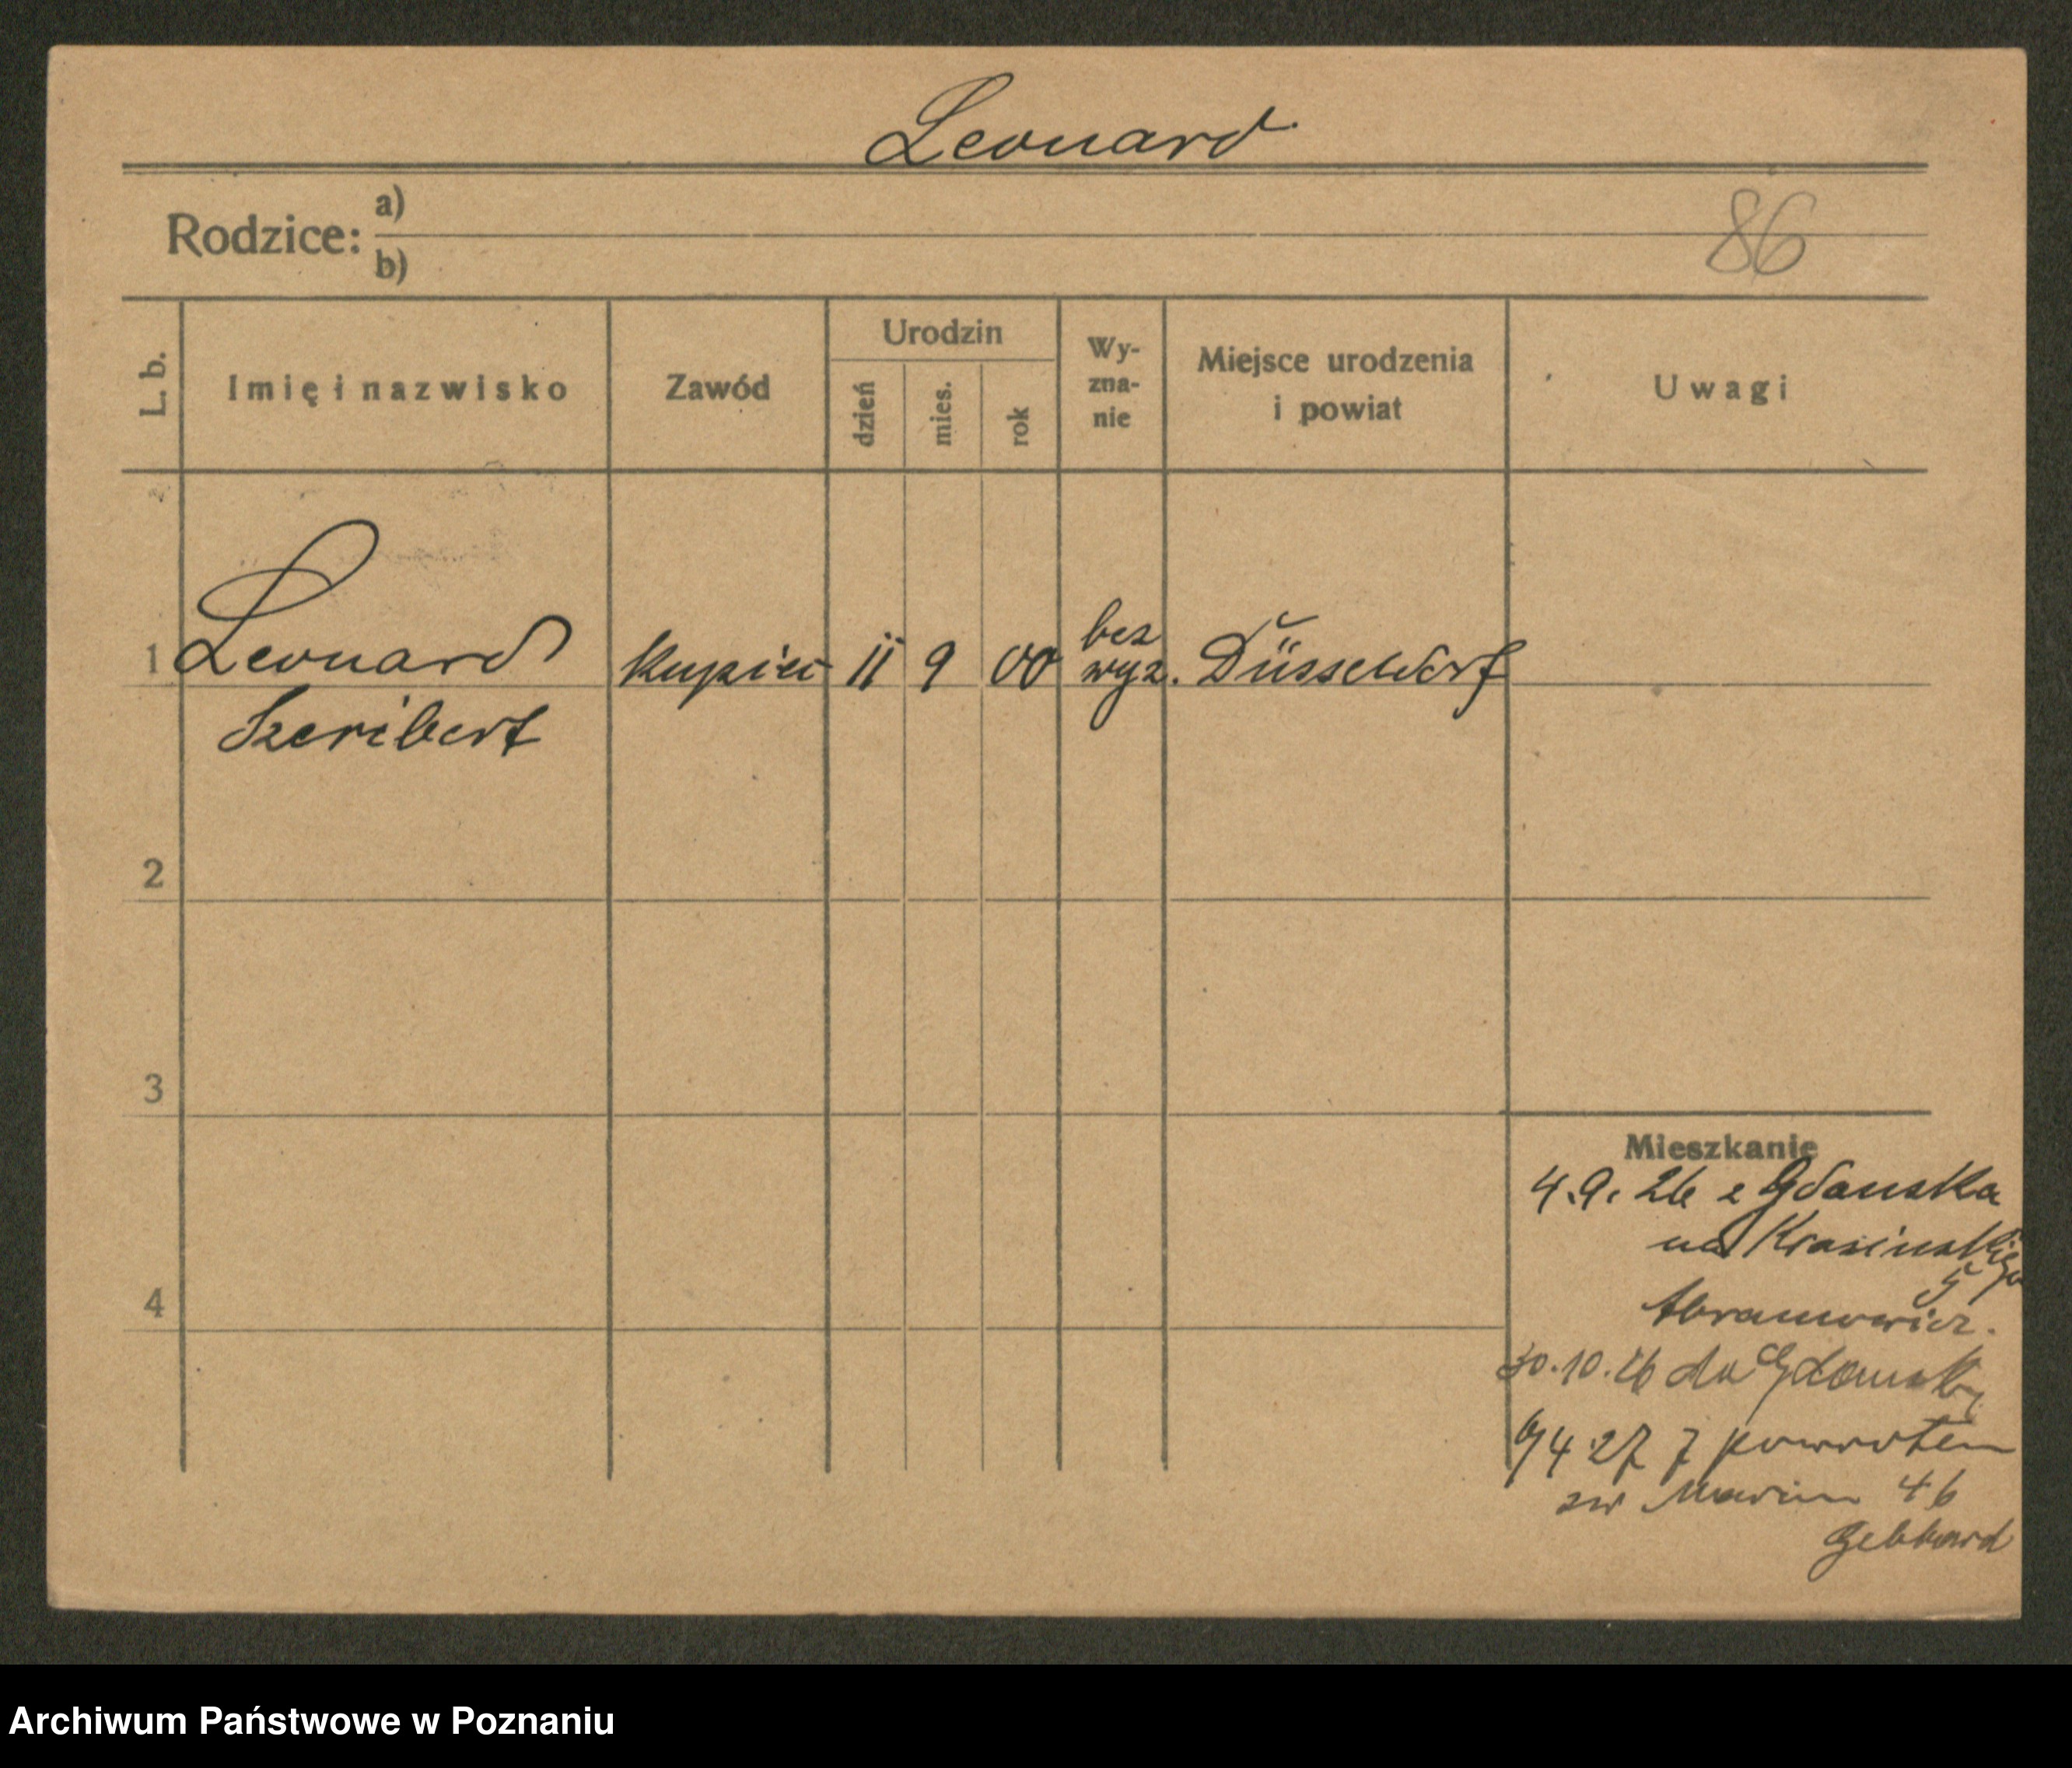 Leonard
Rodzice: a)
b)
86
L. b.
Imię i nazwisko
Zawód
Urodzin
dzień
mies.
rok
Wy-
zna-
nie
Miejsce urodzenia
i powiat
Uwagi
1 Leonard kupiec 11 9 00 bez
wyz. Düsseldorf
2
3
4
Mieszkanie
4.9.26 z Gdańska
na Krasińskiego
5
Abramowicz.
30.10.26 do Gdańska
6/4 27 z powrotem
św Marcin 46
Gebhard
Archiwum Państwowe w Poznaniu